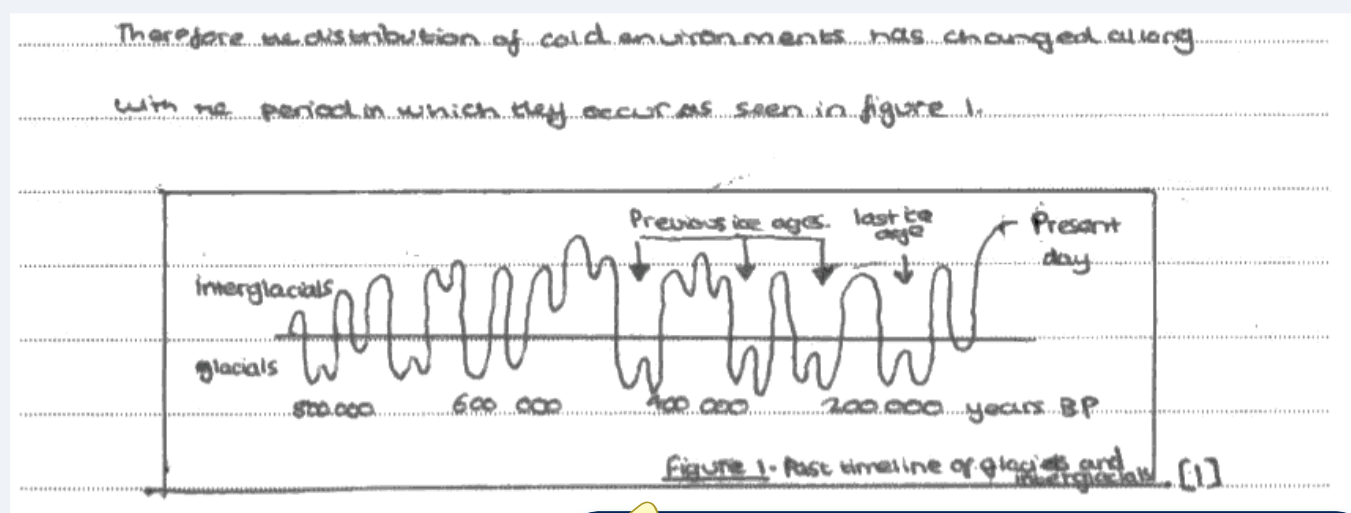 Therefore the distribution of cold environments has changed along
with the period in which they occur as seen in figure 1.
Previous ice ages.
last ice
age
Present
day
interglacials
glacials
800.000
600 000
400 000
200.000 years BP
Figure 1. Past timeline of glacials and
interglacials. [1]